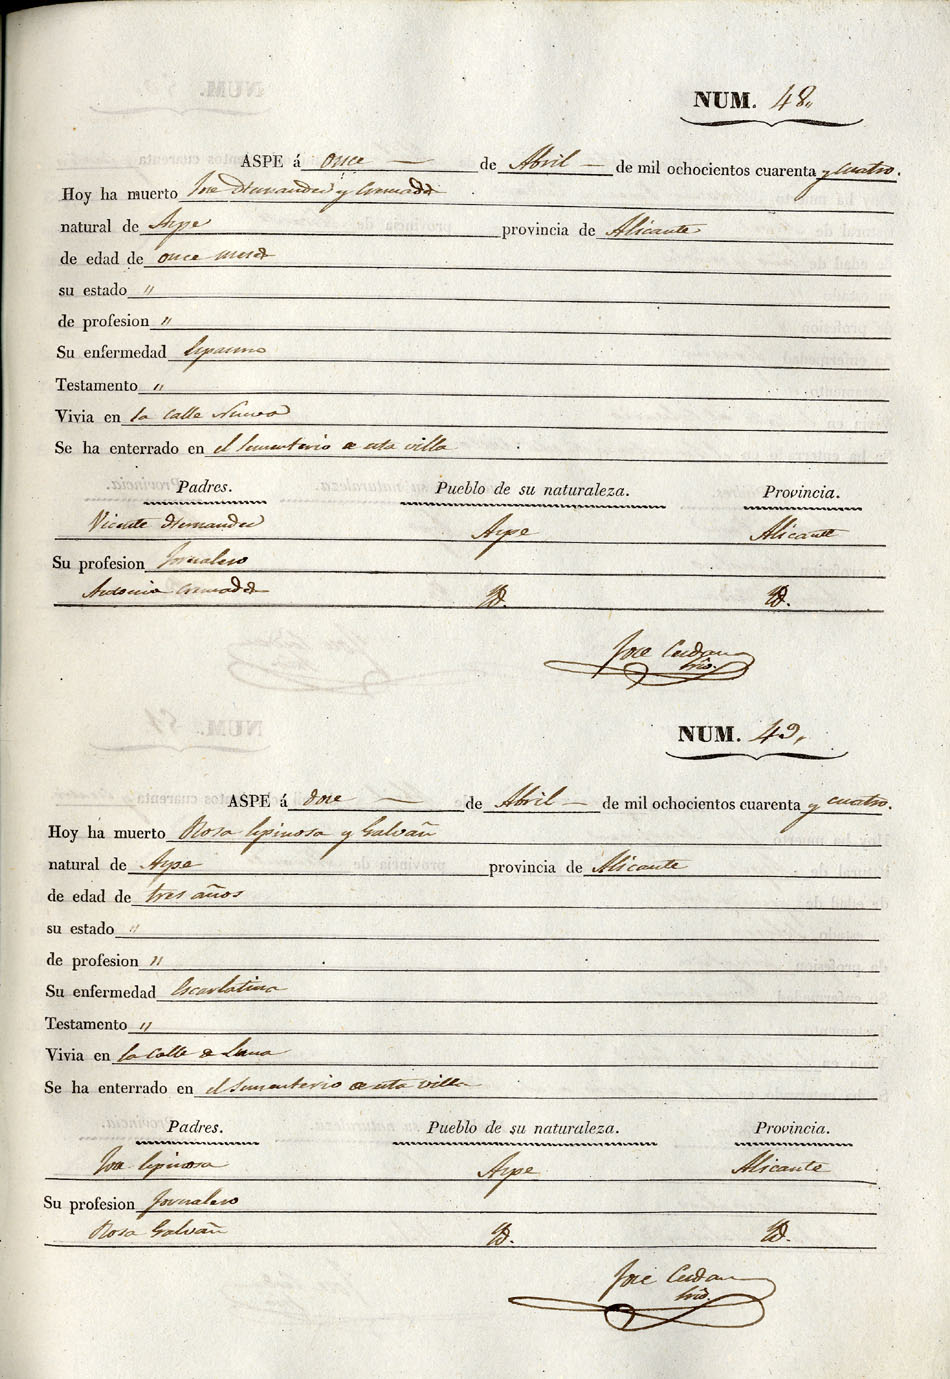 NUM. 48.
ASPE á once — de Abril — de mil ochocientos cuarenta y cuatro.
Hoy ha muerto Jose Hernandez y Cremades
natural de Aspe provincia de Alicante
de edad de once meses
su estado "
de profesion "
Su enfermedad
Testamento "
Vivia en la calle Nueva
Se ha enterrado en el Sementerio de esta villa
Padres. Pueblo de su naturaleza. Provincia.
Vicente Hernandez Aspe Alicante
Su profesion Jornalero
Antonia Cremades Id. Id.
Jose Cerdan
Srio.
NUM. 49.
ASPE á doce — de Abril — de mil ochocientos cuarenta y cuatro.
Hoy ha muerto Rosa Espinosa y Galvañ
natural de Aspe provincia de Alicante
de edad de tres años
su estado "
de profesion "
Su enfermedad Escarlatina
Testamento "
Vivia en la calle de Luna
Se ha enterrado en el Sementerio de esta villa
Padres. Pueblo de su naturaleza. Provincia.
Jose Espinosa Aspe Alicante
Su profesion Jornalero
Rosa Galvañ Id. Id.
Jose Cerdan
Srio.